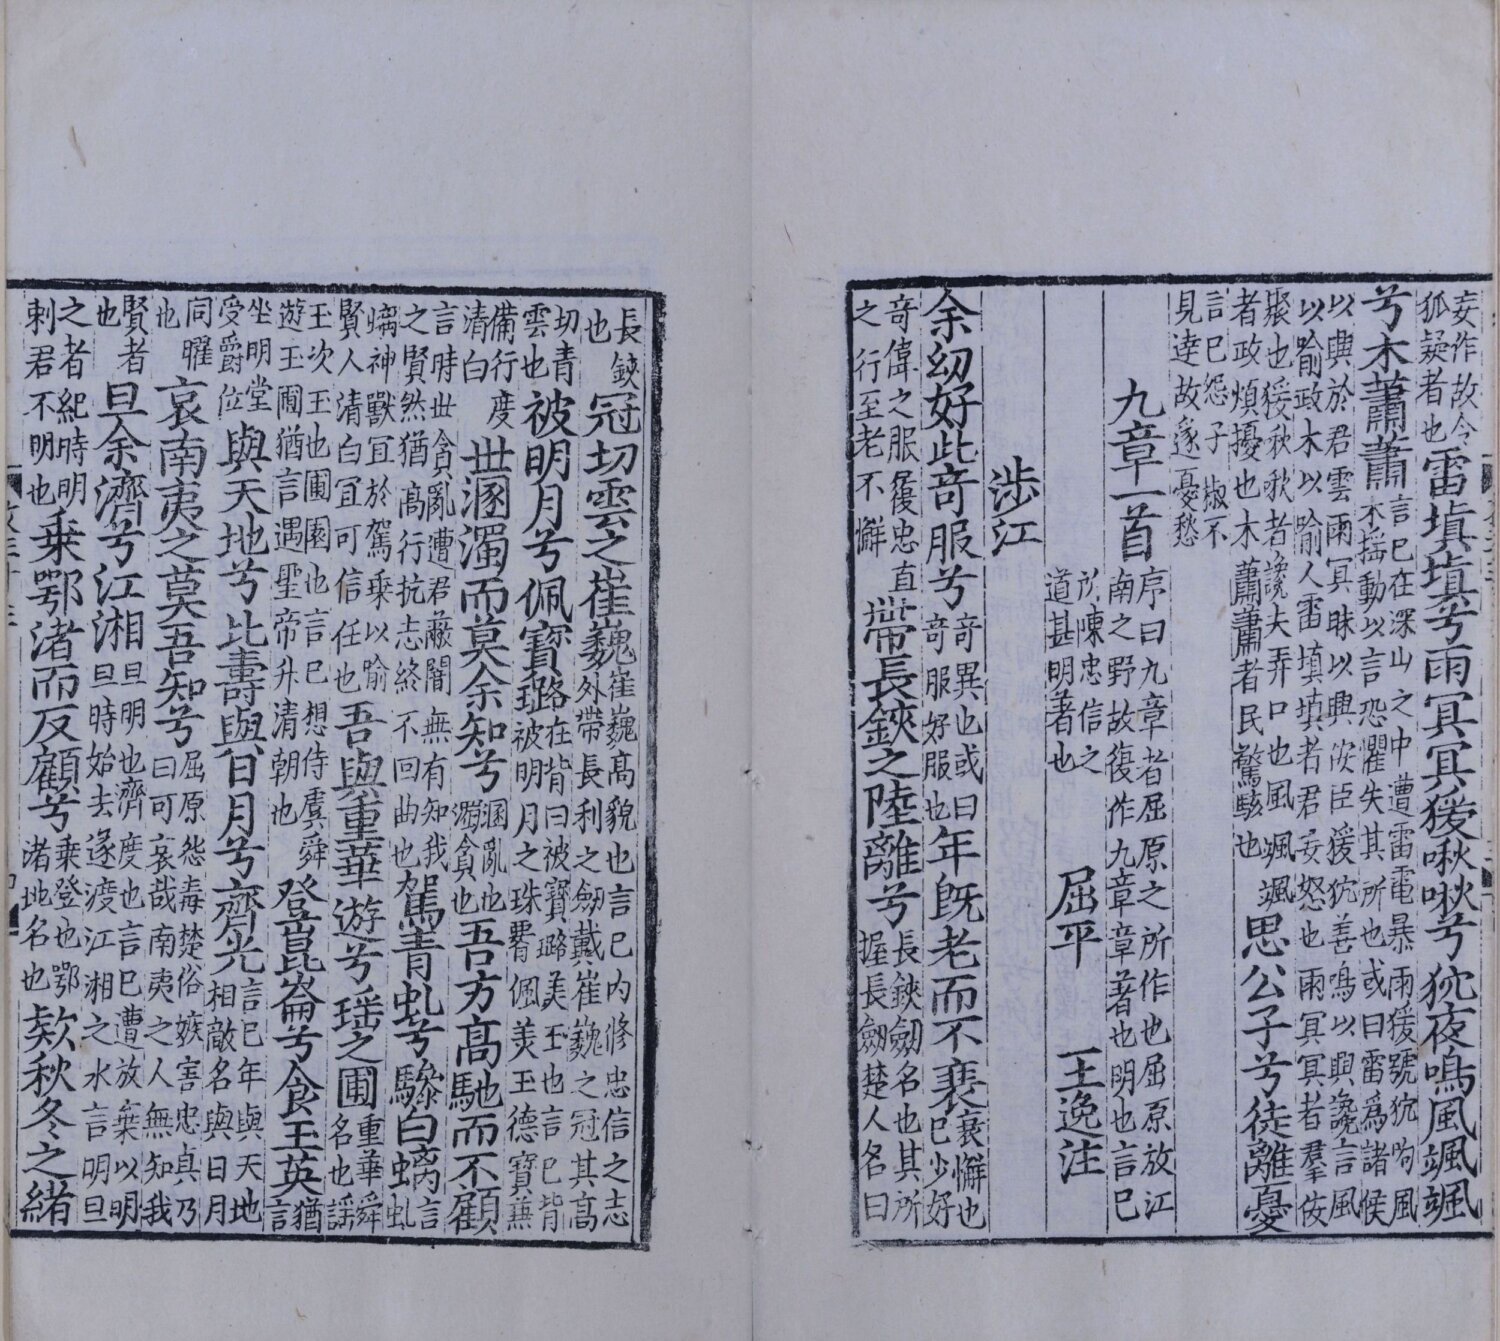 妄作故令狐疑者也雷填填兮雨冥冥猨啾啾兮狖夜鳴風颯颯
兮木蕭蕭言己在深山之中遭雷電暴雨猨號狖呴風木摇動以言恐懼失其所也或曰雷爲諸候
以興於君雲雨冥昧以興佞臣猨狖善鳴以興讒言風以喻政木以喻人雷填填者君妄怒也雨冥冥者羣佞
聚也猨啾啾者讒夫弄口也風颯颯者政煩擾也木蕭蕭者民驚駭也思公子兮徒離憂
言己怨子椒不見逹故遂憂愁
九章一首序曰九章者屈原之所作也屈原放江南之野故復作九章章著也明也言己
所陳忠信之道甚明著也 屈平 王逸注
涉江
余幼好此竒服兮竒異也或曰竒服好服也年既老而不衰衰懈也己少好
竒偉之服履忠直之行至老不懈帶長鋏之陸離兮長鋏劒名也其所握長劒楚人名曰
長鋏也冠切雲之崔巍崔巍高貌也言己内修忠信之志外帶長利之劒戴崔巍之冠其高
切青雲也被明月兮佩寶璐在背曰被寶璐美玉也言己背被明月之珠要佩美玉德寶兼
備行度清白世溷濁而莫余知兮溷亂也濁貪也吾方高馳而不顧
言時世貪亂遭君蔽闇無有知我之賢然猶高行抗志終不回曲也駕青虬兮驂白螭言虬
螭神獸冝於駕乗以喻賢人清白冝可信任也吾與重華遊兮瑶之圃重華舜名也謡
玉次玉也圃園也言己想侍虞舜遊玉圃猶言遇聖帝升清朝也登崑崙兮食玉英猶言
坐明堂受爵位與天地兮比壽與日月兮齊光言己年與天地相敵名與日月
同曜也哀南夷之莫吾知兮屈原怨毒楚俗嫉害忠貞乃曰可哀哉南夷之人無知我
賢者也旦余濟兮江湘旦明也濟度也言己遭放棄以明旦時始去遂渡江湘之水言明旦
之者紀時明刺君不明也乗鄂渚而反顧兮乗登也鄂渚地名也欸秋冬之緒